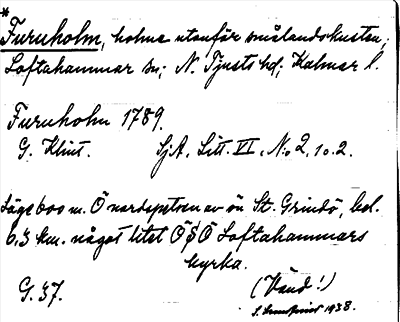 *
Furuholm, holme utanför smålandskusten;
Loftahammar sn; N. Tjusts hd; Kalmar l.
Furuholm 1789.
G. Klint. SjA, Litt. VI, No 2, 10.2.
Läge 600 m. Ö nordspetsen av ön St. Grindö, bel.
6,3 km. något litet ÖSÖ Loftahammars
kyrka.
G. 37. (Vänd!)
1938.